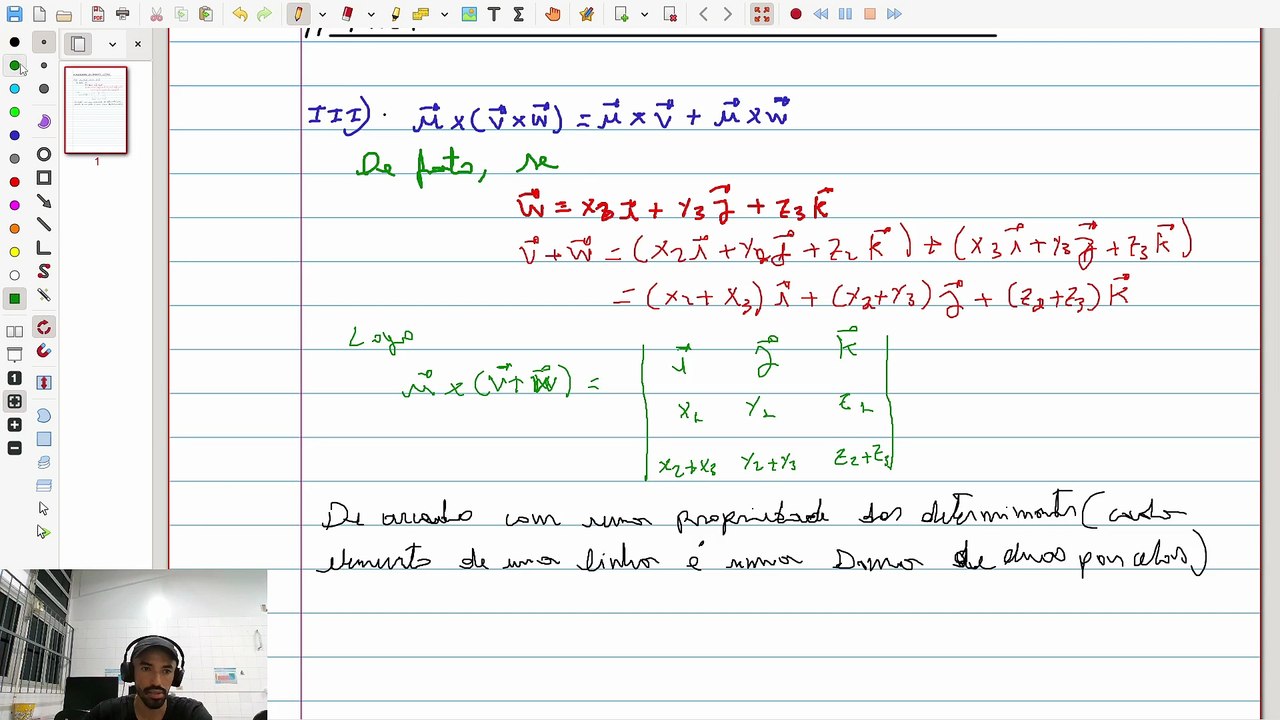 III). u⃗ × (v⃗ × w⃗) = u⃗ × v⃗ + u⃗ × w⃗
De fato, se
w⃗ = x3 i⃗ + y3 j⃗ + z3 k⃗
v⃗ + w⃗ = (x2 i⃗ + y2 j⃗ + z2 k⃗) + (x3 i⃗ + y3 j⃗ + z3 k⃗)
= (x2 + x3) i⃗ + (y2 + y3) j⃗ + (z2 + z3) k⃗
Logo
i⃗ j⃗ k⃗
u⃗ × (v⃗ + w⃗) =
x1 y1 z1
x2 + x3 y2 + y3 z2 + z3
De acordo com uma propriedade dos determinantes (cada
elemento de uma linha é uma soma de duas parcelas)
1